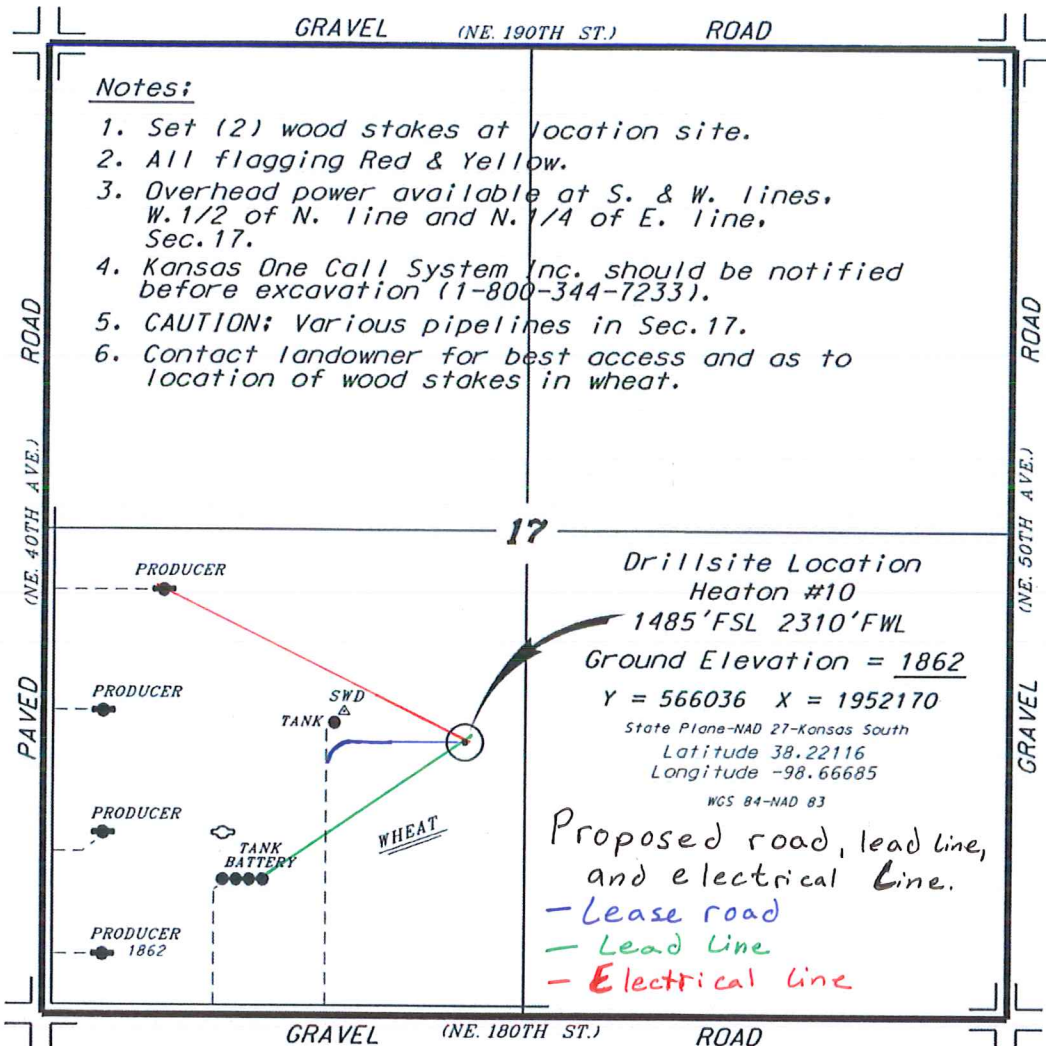 GRAVEL (NE. 190TH ST.) ROAD
Notes:
1. Set (2) wood stakes at location site.
2. All flagging Red & Yellow.
3. Overhead power available at S. & W. lines,
W.1/2 of N. line and N.1/4 of E. line,
Sec.17.
4. Kansas One Call System Inc. should be notified
before excavation (1-800-344-7233).
5. CAUTION: Various pipelines in Sec.17.
6. Contact landowner for best access and as to
location of wood stakes in wheat.
PAVED (NE. 40TH AVE.) ROAD
GRAVEL (NE. 50TH AVE.) ROAD
17
PRODUCER
PRODUCER
SWD
TANK
PRODUCER
TANK
BATTERY
WHEAT
PRODUCER
1862
Drillsite Location
Heaton #10
1485'FSL 2310'FWL
Ground Elevation = 1862
Y = 566036 X = 1952170
State Plane-NAD 27-Kansas South
Latitude 38.22116
Longitude -98.66685
WGS 84-NAD 83
Proposed road, lead line,
and electrical Line.
- Lease road
- Lead Line
- Electrical Line
GRAVEL (NE. 180TH ST.) ROAD